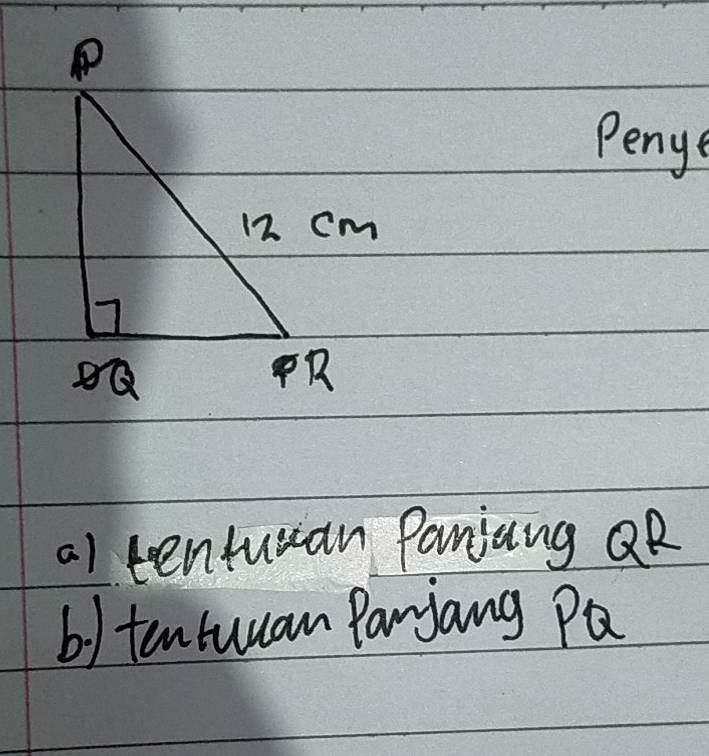 P
Penye
12 cm
Q
R
a) tentukan Panjang QR
b.) tentukan Panjang PQ